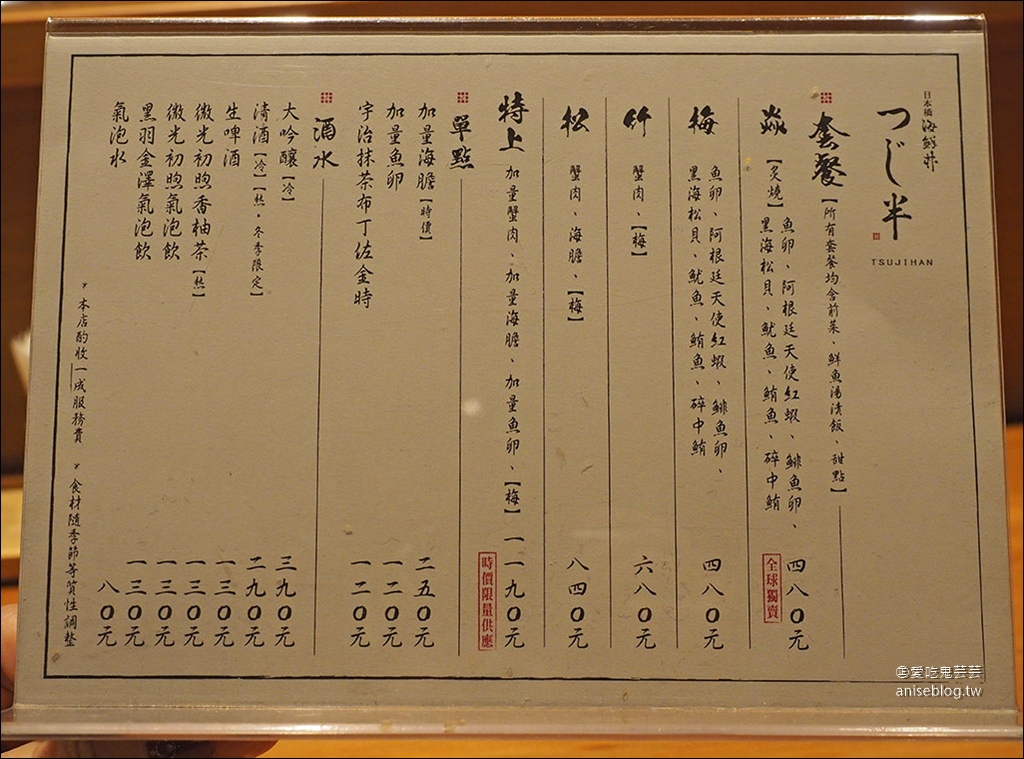 日本橋 海鮮丼
つじ半
TSUJIHAN
套餐【所有套餐均含前菜、鮮魚湯漬飯、甜點】
焱【炙燒】魚卵、阿根廷天使紅蝦、鯡魚卵、
黑海松貝、魷魚、鮪魚、碎中鮪
四八〇元
全球獨賣
梅 魚卵、阿根廷天使紅蝦、鯡魚卵、
黑海松貝、魷魚、鮪魚、碎中鮪
四八〇元
竹 蟹肉、【梅】 六八〇元
松 蟹肉、海膽、【梅】 八四〇元
特上 加量蟹肉、加量海膽、加量魚卵、【梅】 一一九〇元
時價限量供應
單點
加量海膽【時價】 二五〇元
加量魚卵 一二〇元
宇治抹茶布丁佐金時 一二〇元
酒水
大吟釀【冷】 三九〇元
清酒【冷】【熱·冬季限定】 二九〇元
生啤酒 一三〇元
微光初煦香柚茶【熱】 一三〇元
微光初煦氣泡飲 一三〇元
黑羽金澤氣泡飲 一三〇元
氣泡水 八〇元
*本店酌收一成服務費 *食材隨季節等質性調整
愛吃鬼芸芸
aniseblog.tw